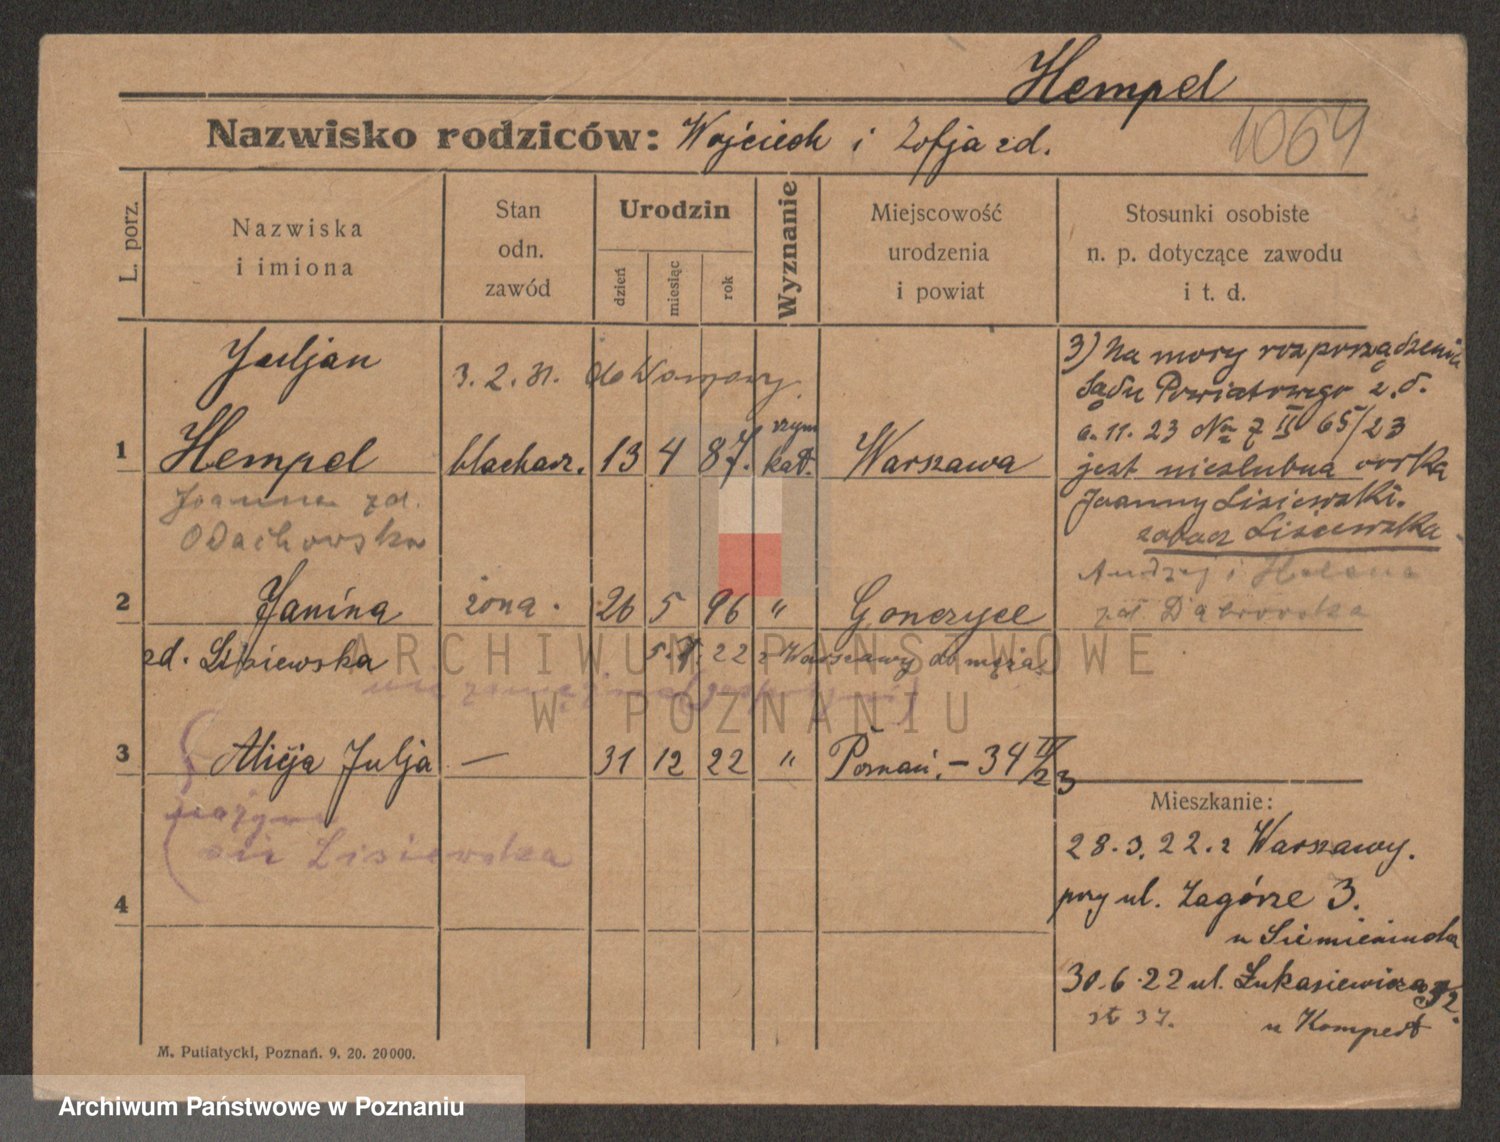 Hempel
Nazwisko rodziców: Wojciech i Zofja zd.
1064
L. porz.
Nazwiska
i imiona
Stan
odn.
zawód
Urodzin
dzień
miesiąc
rok
Wyznanie
Miejscowość
urodzenia
i powiat
Stosunki osobiste
n. p. dotyczące zawodu
i t. d.
Juljan
3. 2. 31. do Warszawy
1 Hempel blacharz. 13 4 87. rzym kat. Warszawa
Joanna zd.
Odachowska
2 Janina żona. 26 5 96 " Gonczyce
zd. Lisiewska 5. 7. 22 z Warszawy do męża.
3 Alicja Julja — 31 12 22 " Poznań. – 34 II/23
Lisiewska
4
3) Na mocy rozporządzenia
Sądu Powiatowego z. d.
6. 11. 23 Nr 7 II 65/23
jest nieślubna córka
Joanny Lisiewski.
zobacz Lisiewska
Andrzej i Helena
zd Dąbrowska
Mieszkanie:
28. 3. 22. z Warszawy.
przy ul. Zagórze 3.
u
30. 6. 22 ul. Łukasiewicza 32.
st 37. u
M. Putiatycki, Poznań. 9. 20. 20000.
ARCHIWUM PAŃSTWOWE
W POZNANIU
Archiwum Państwowe w Poznaniu